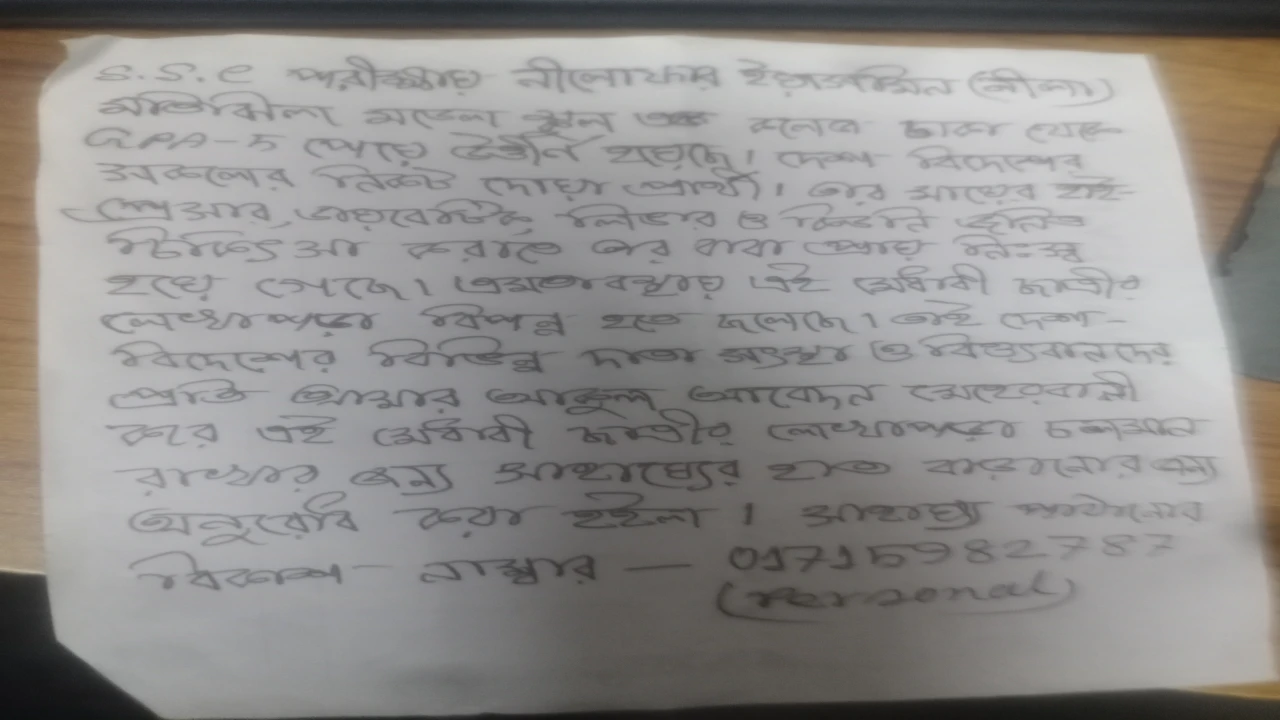 S.S.C পরীক্ষায় নীলোফার ইয়াসমিন (নীলা)
মতিঝিল মডেল স্কুল এন্ড কলেজ ঢাকা থেকে
GPA-5 পেয়ে উর্ত্তীন হয়েছে। দেশ বিদেশের
সকলের নিকট দোয়া প্রার্থী। তার মায়ের হাই-
প্রেসার, ডায়বেটিক, লিভার ও কিডনি জনিত
চিকিৎসা করাতে তার বাবা প্রায় নিঃস্ব
হয়ে গেছে। এমতাবস্থায় এই মেধাবী ছাত্রীর
লেখাপড়া বিপন্ন হতে চলেছে। তাই দেশ-
বিদেশের বিভিন্ন দাতা সংস্থা ও বিত্তবানদের
প্রতি আমার আকুল আবেদন মেহেরবানী
করে এই মেধাবী ছাত্রীর লেখাপড়া চলমান
রাখার জন্য সাহায্যের হাত বাড়ানোর জন্য
অনুরোধ করা হইল। সাহায্য পাঠানোর
বিকাশ- নাম্বার — 01715982787
(Personal)